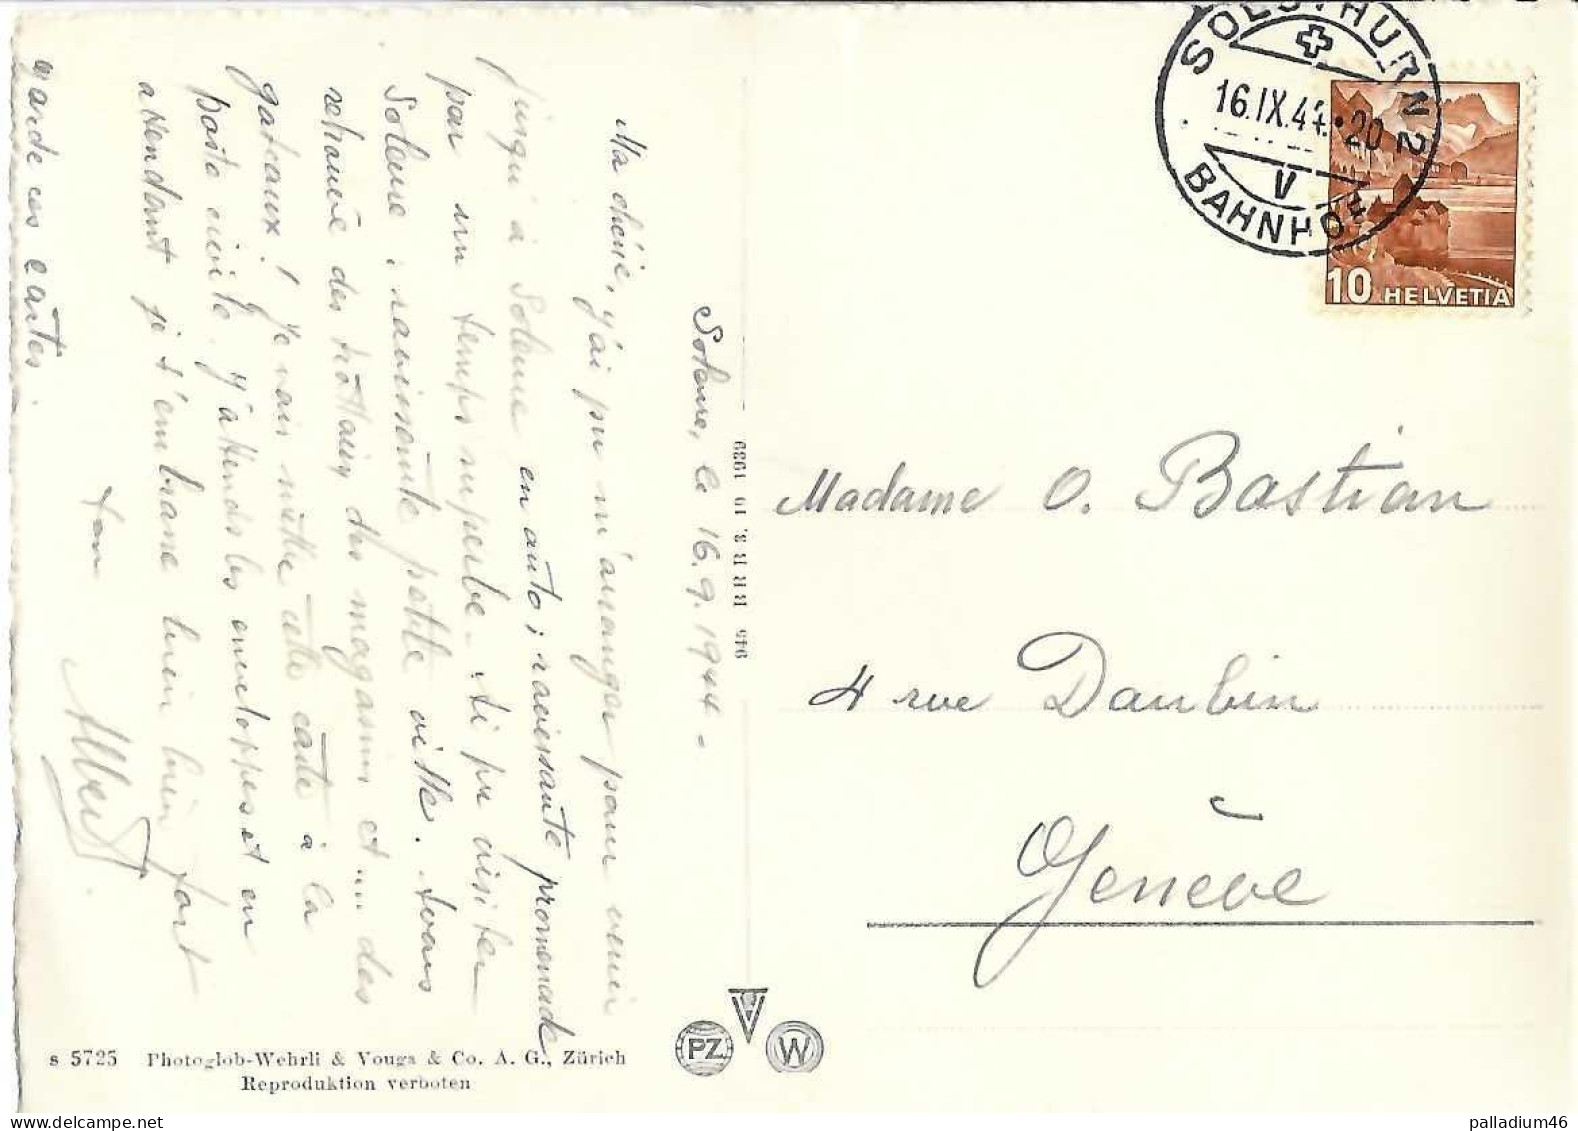 Soleure, le 16.9.1944 -
Ma chérie, j'ai pu m'arranger pour venir
jusqu'à Soleure en auto ; ravissante promenade
par un temps superbe - Ai pu visiter
Soleure, ravissante petite ville. Avons
retrouvé des trottoirs, des magasins et .... des
gateaux ! Je vais mettre cette carte à la
poste civile. J'attends les enveloppes et en
attendant je t'embrasse bien bien fort
ton
Albert.
garde ces cartes.
946 R R B 3. 10 1939
SOLOTHURN 2
16.IX.44.-20
V
BAHNHOF
10 HELVETIA
Madame O. Bastian
4 rue Daubin
Genève
PZ V W
s 5725 Photoglob-Wehrli & Vouga & Co. A. G., Zürich
Reproduktion verboten
palladium46